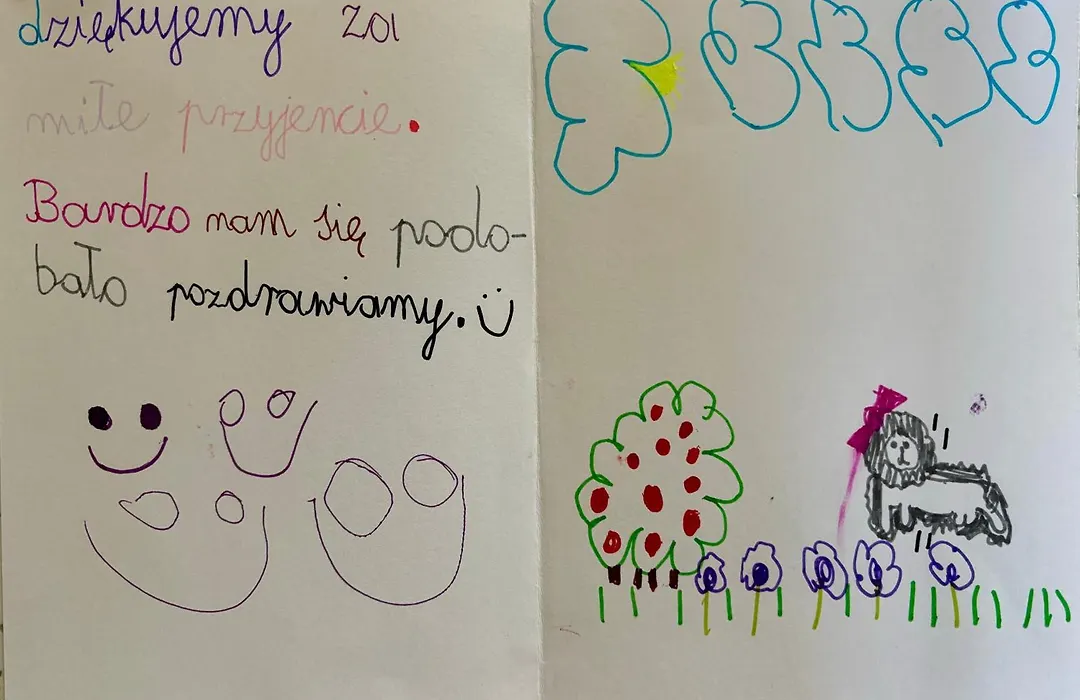 dziękujemy za
miłe przyjencie.
Bardzo nam się podo-
bało pozdrawiamy.